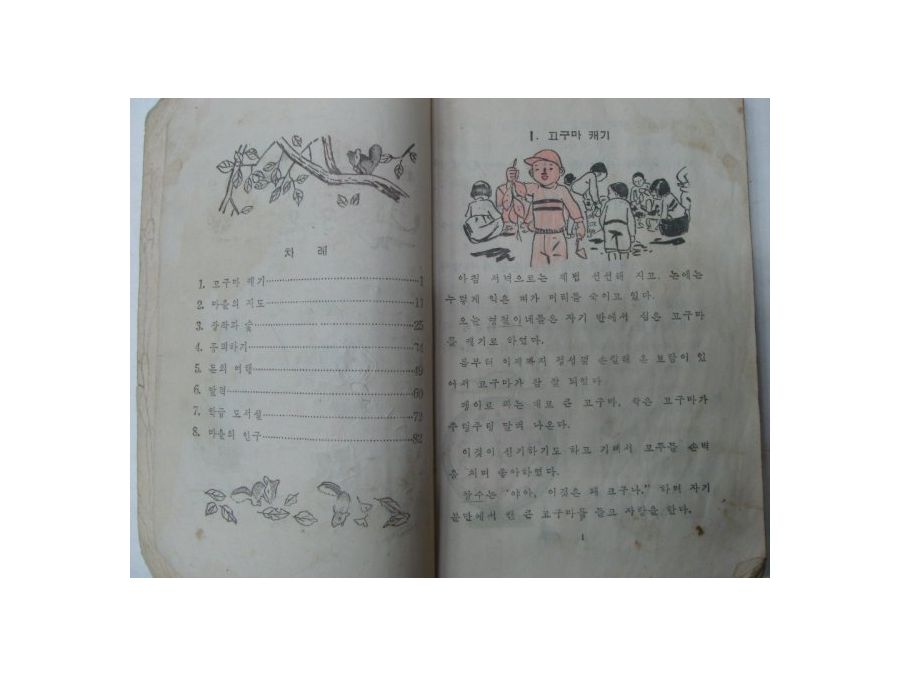 차 례
1. 고구마 캐기 1
2. 마을의 지도 11
3. 장작과 숯 25
4. 34
5. 돈의 여행 49
6. 발걸 60
7. 학급 도서실 72
8. 마을의 인구 82
1. 고구마 캐기
아침 저녁으로는 제법 선선해 지고, 논에는
누렇게 익은 벼가 머리를 숙이고 있다.
오늘 영철이네들은 자기 반에서 심은 고구마
를 캐기로 하였다.
봄부터 이제까지 정성껏 손질해 온 보람이 있
어서 고구마가 참 잘 되었다
괭이로 파는 대로 큰 고구마, 작은 고구마가
주렁주렁 달려 나온다.
이것이 신기하기도 하고 기뻐서 모두들 손벽
을 치며 좋아하였다.
창수는 "야아, 이것은 꽤 크구나," 하며 자기
분단에서 캔 큰 고구마를 들고 자랑을 한다.
1